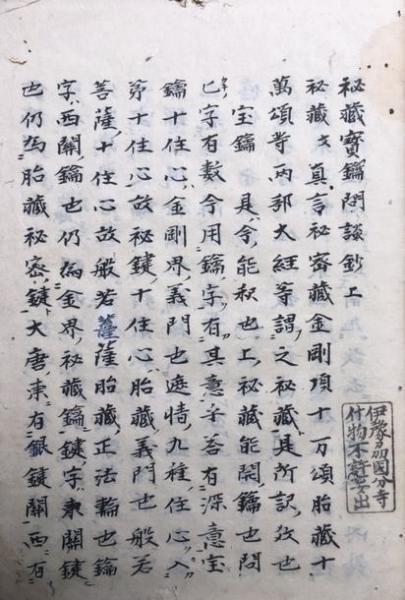 秘藏寳鑰聞談鈔上
秘藏者真言秘密藏金剛頂十万頌胎藏十
萬頌等兩部大經等謂之秘藏是所訳教也
宝鑰 是今能釈也上秘藏能開鑰也問
匕字有數今用鑰字有其意乎答有深意宝
鑰十住心金剛界義門也遮情九種住心入
第十住心故秘鍵十住心胎藏義門也般若
菩薩十住心故般若菩薩胎藏正法輪也鑰
字西關鑰也仍為金界秘藏鑰鍵字東關鍵
也仍為胎藏秘密鍵大唐東有銀鍵關西有
伊豫國分寺
什物不許出